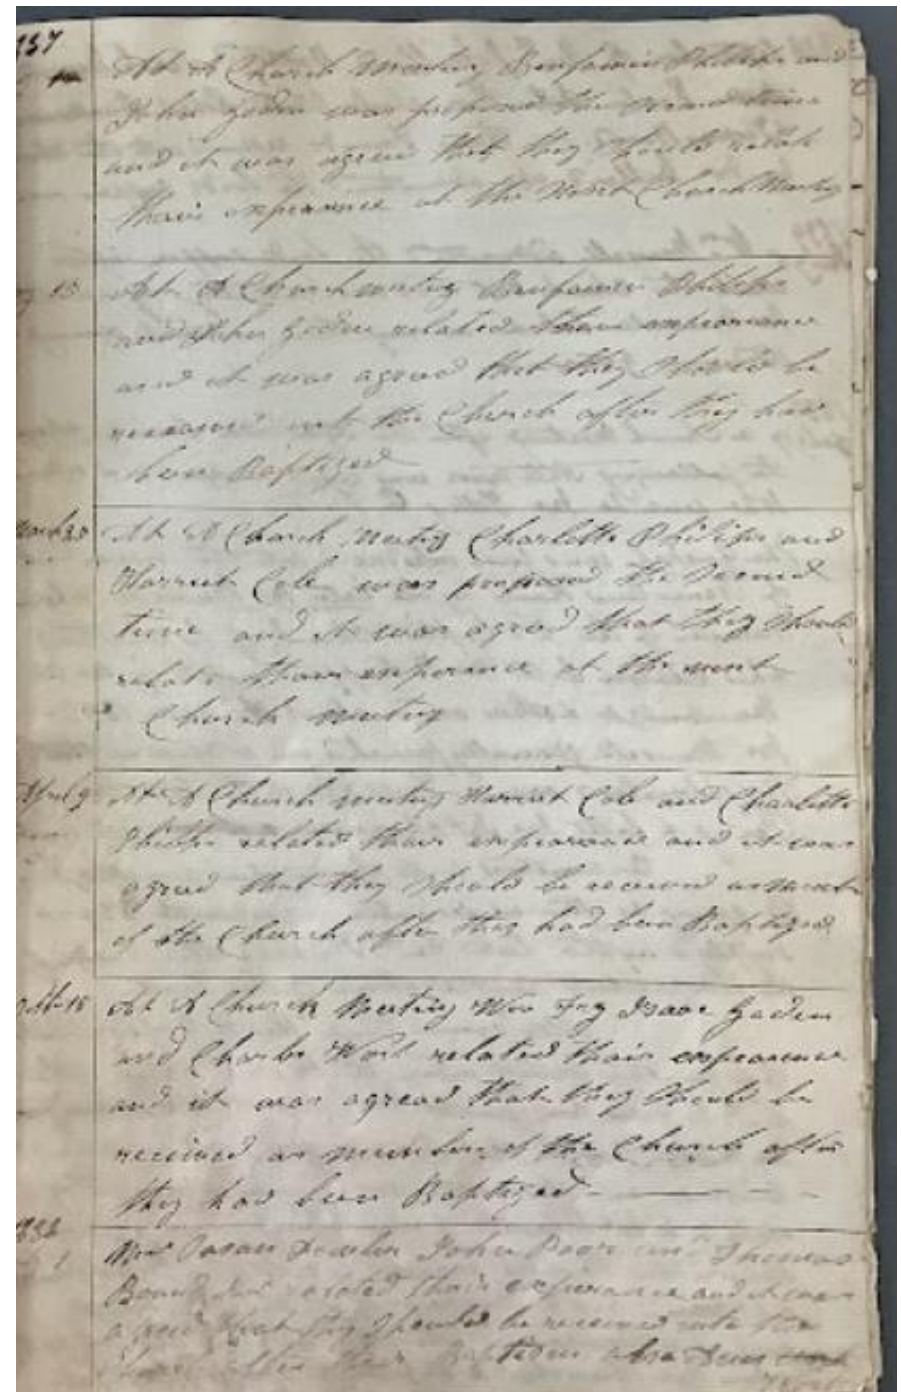 At A Church Meeting Benjamin Philips and
John Goden was proposed the second time
and it was agreed that they should relate
their experance at the Next Church Meeting
13
At A Church meeting Benjamin Philips
and John Goden related their experiance
and it was agreed that they Should be
into the Church after they have
been Baptized
March
At A Church Meeting Charlotte Philips and
Harriet Cole was proposed the Second
time and it was agreed that they Should
relate their experance at the next
Church meeting
April 9
At A Church meeting Harriet Cole and Charlotte
Philips related their experance and it was
agreed that they Should be received as
of the Church after they had been Baptized
18
At A Church Meeting Wm Isaac Goden
and Charles related their experance
and it was agreed that they Should be
received as members of the Church after
they had been Baptized
Mrs Susan John and Thomas
related their experance and it was
agreed that they Should be received into the
Church after their Baptism also